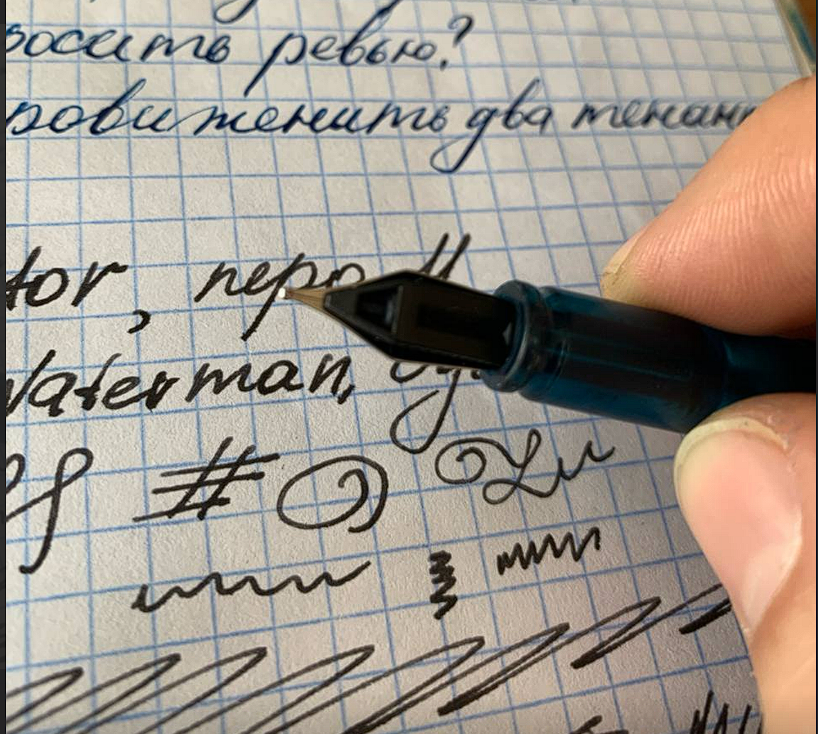 росить ревью?
ровиженить два тенан
tor, перо M
Waterman,
#